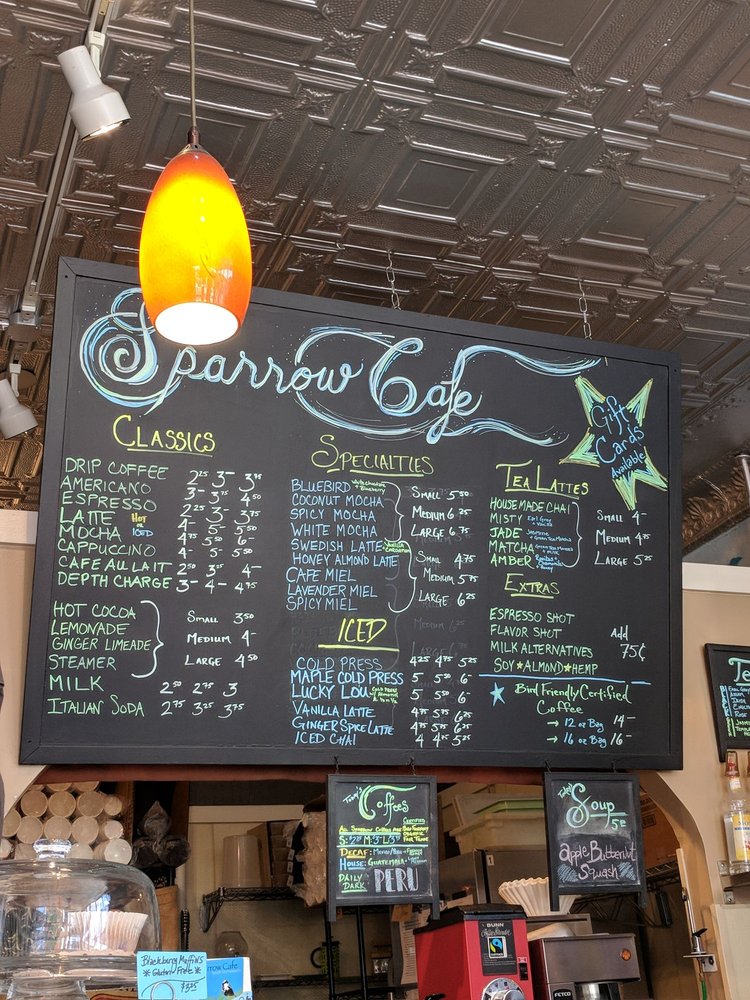 Sparrow Cafe
Gift
Cards
Available
CLASSICS
DRIP COFFEE 2²⁵ 3- 3⁷⁵
AMERICANO 3- 3⁷⁵ 4⁵⁰
ESPRESSO 2²⁵ 3- 3⁷⁵
LATTE HOT or ICED 4- 5- 5⁵⁰
MOCHA 4⁷⁵ 5⁵⁰ 6-
CAPPUCCINO 4- 5- 5⁵⁰
CAFE AU LAIT 2⁵⁰ 3²⁵ 4-
DEPTH CHARGE 3- 4- 4⁷⁵
HOT COCOA
LEMONADE
GINGER LIMEADE
STEAMER
SMALL 3⁵⁰
MEDIUM 4-
LARGE 4⁵⁰
MILK 2⁵⁰ 2⁷⁵ 3
ITALIAN SODA 2⁷⁵ 3²⁵ 3⁷⁵
SPECIALTIES
BLUEBIRD White Chocolate + Blueberry
COCONUT MOCHA
SPICY MOCHA
WHITE MOCHA
SMALL 5⁵⁰
MEDIUM 6²⁵
LARGE 6⁷⁵
SWEDISH LATTE VANILLA CARDAMOM
HONEY ALMOND LATTE
CAFE MIEL
LAVENDER MIEL
SPICY MIEL
SMALL 4⁷⁵
MEDIUM 5⁷⁵
LARGE 6²⁵
ICED
COLD PRESS 4²⁵ 4⁷⁵ 5²⁵
MAPLE COLD PRESS 5 5⁵⁰ 6-
LUCKY LOU 5 5⁵⁰ 6-
VANILLA LATTE 4⁷⁵ 5⁷⁵ 6²⁵
GINGER SPICE LATTE 4⁷⁵ 5⁷⁵ 6²⁵
ICED CHAI 4 4⁷⁵ 5²⁵
TEA LATTES
HOUSEMADE CHAI
MISTY Earl Grey + Vanilla
JADE Jasmine + Green Tea Matcha
MATCHA
AMBER
SMALL 4-
MEDIUM 4⁷⁵
LARGE 5²⁵
EXTRAS
ESPRESSO SHOT
FLAVOR SHOT
MILK ALTERNATIVES
SOY ★ ALMOND ★ HEMP
Add
75¢
★ Bird Friendly Certified
Coffee
→ 12 oz Bag 14-
→ 16 oz Bag 16-
Today's
Coffees
ALL SPARROW COFFEES ARE
CERTIFIED
BIRD FRIENDLY
ORGANIC
FAIR TRADE
DECAF:
HOUSE: GUATEMALA
DAILY
DARK PERU
Today's
Soup
5⁵⁰
apple Butternut
Squash
Te
Blackberry Muffins
*Gluten Free*
$3.25
row Cafe
BUNN
FETCO